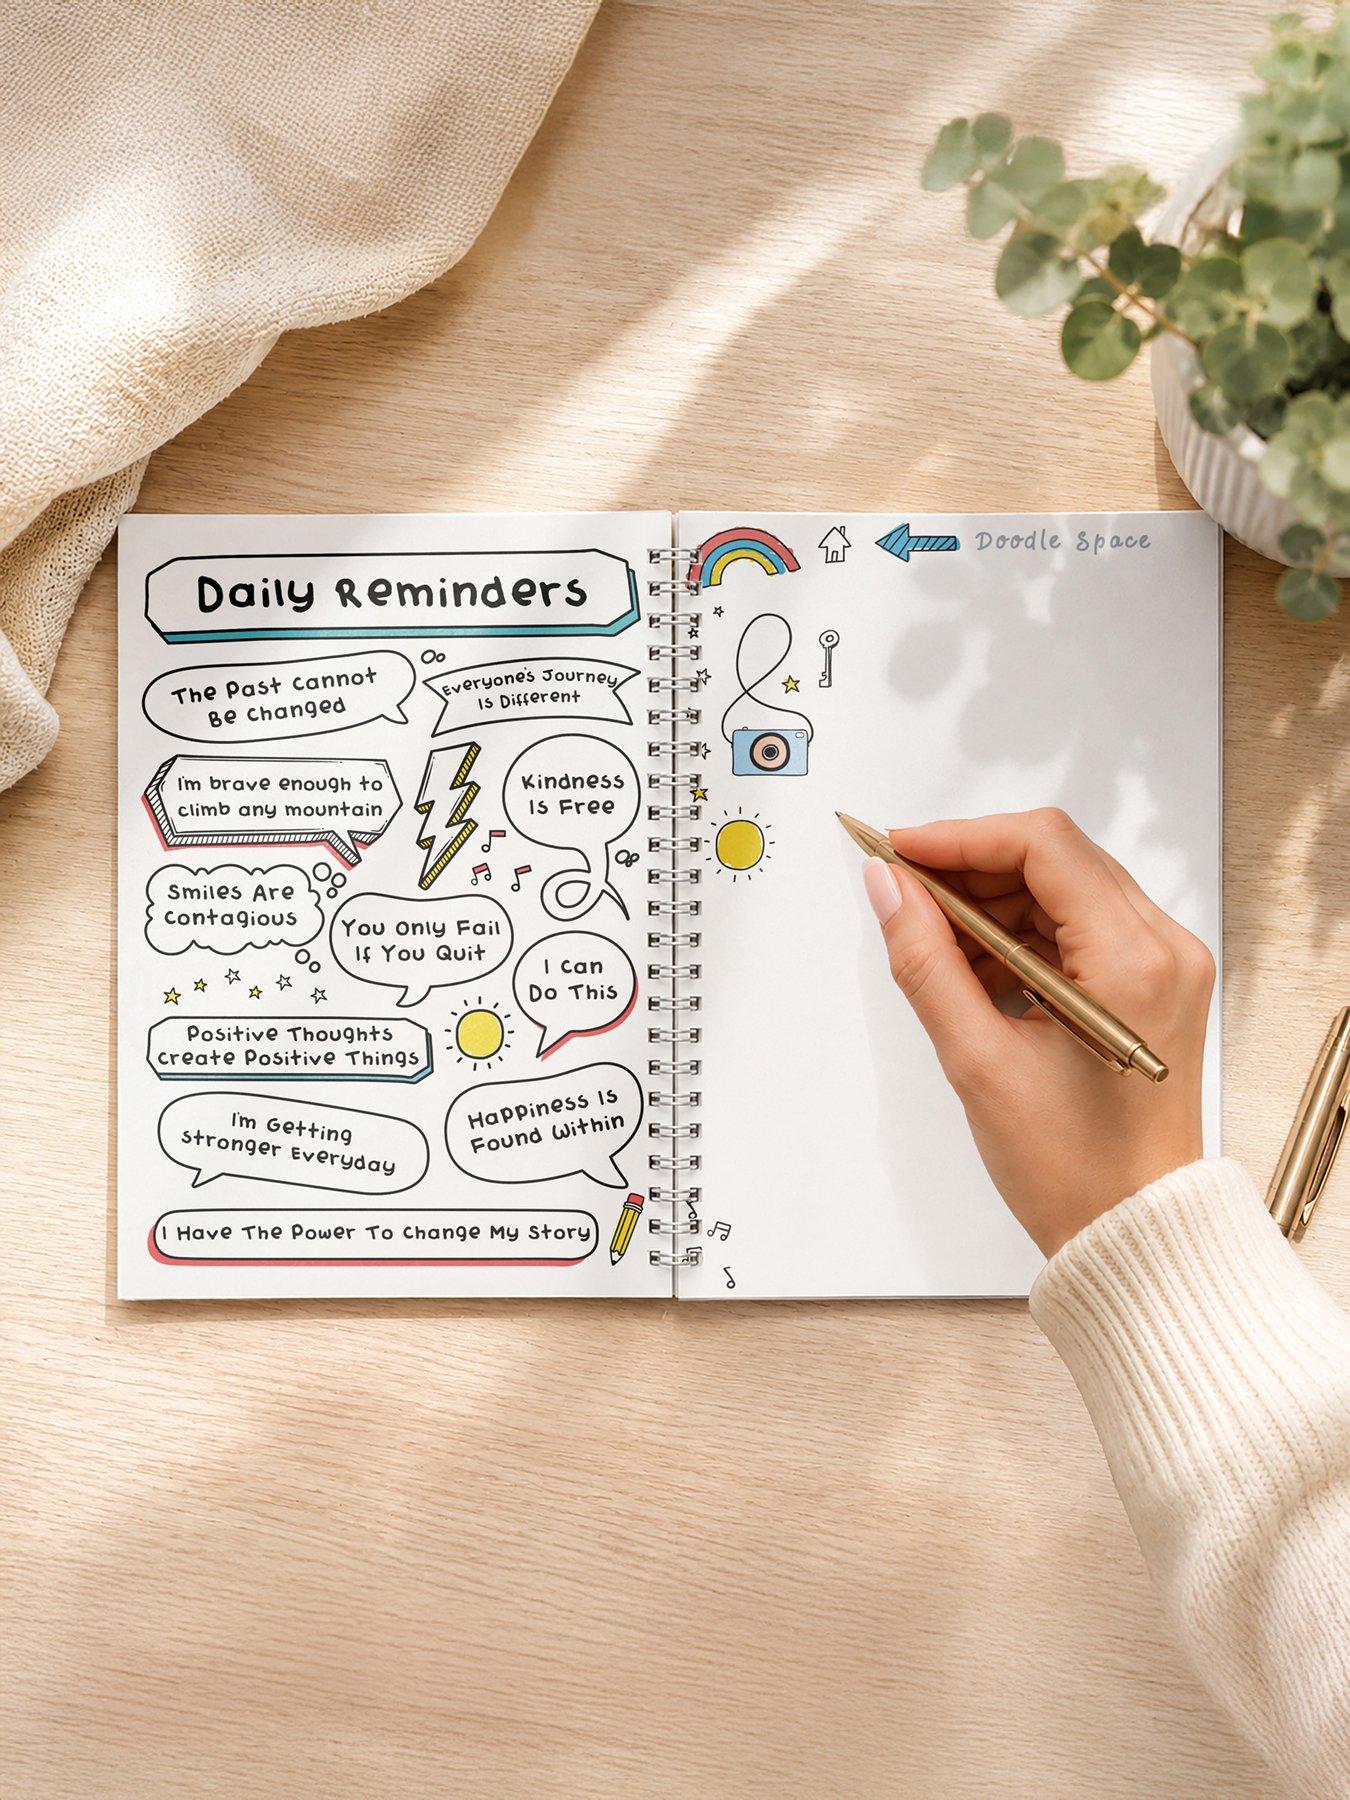 Daily Reminders
The Past Cannot
Be Changed
Everyone's Journey
Is Different
I'm brave enough to
climb any mountain
Kindness
Is Free
Smiles Are
Contagious
You Only Fail
If You Quit
I Can
Do This
Positive Thoughts
Create Positive Things
I'm Getting
Stronger Everyday
Happiness Is
Found Within
I Have The Power To Change My Story
Doodle Space